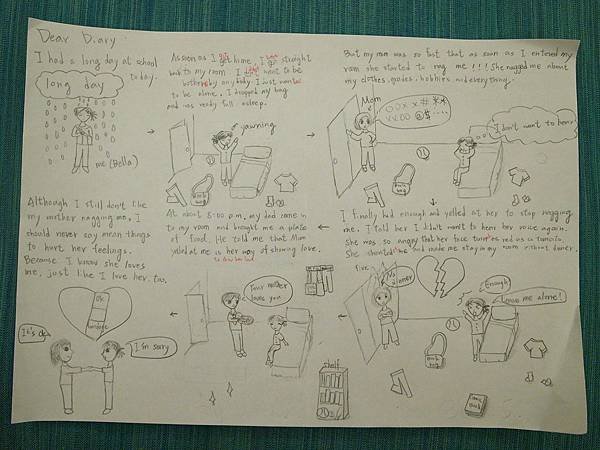 Dear Diary:
I had a long day at school
today.
long day
me (Bella)
As soon as I got home, I went straight
back to my room. I didn't want to be
bothered by anybody. I just wanted
to be alone. I dropped my bag
and was ready fall asleep.
yawning
But my mom was so fast that as soon as I entered my
room she started to nag me!!! She nagged me about
my clothes, grades, hobbies and everything.
Mom
I don't want to hear
I finally had enough and yelled at her to stop nagging
me. I told her I didn't want to hear her voice again.
She was so angry that her face turned red as a tomato.
She shouted me and made me stay in my room without dinner.
No dinner
Enough!
Leave me alone!
At about 8:00 p.m. my dad came in
to my room and brought me a plate
of food. He told me that Mom
yelled at me is her way of showing love.
Your mother
loves you
shelf
Although I still don't like
my mother nagging me, I
should never say mean things
to hurt her feelings.
Because I know she loves
me, just like I love her, too.
OK
bandage
It's ok
I'm sorry